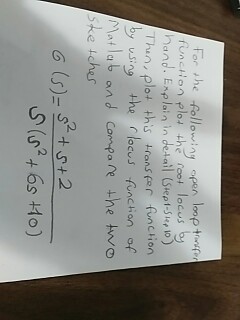 For the following open loop transfer
function plot the root locus by
hand. Explain in detail (Step1-Step10)
Then, plot this transfer function
by using the rlocus function of
Matlab and compare the two
sketches
G(s) = s² + s + 2
s(s² + 6s + 10)